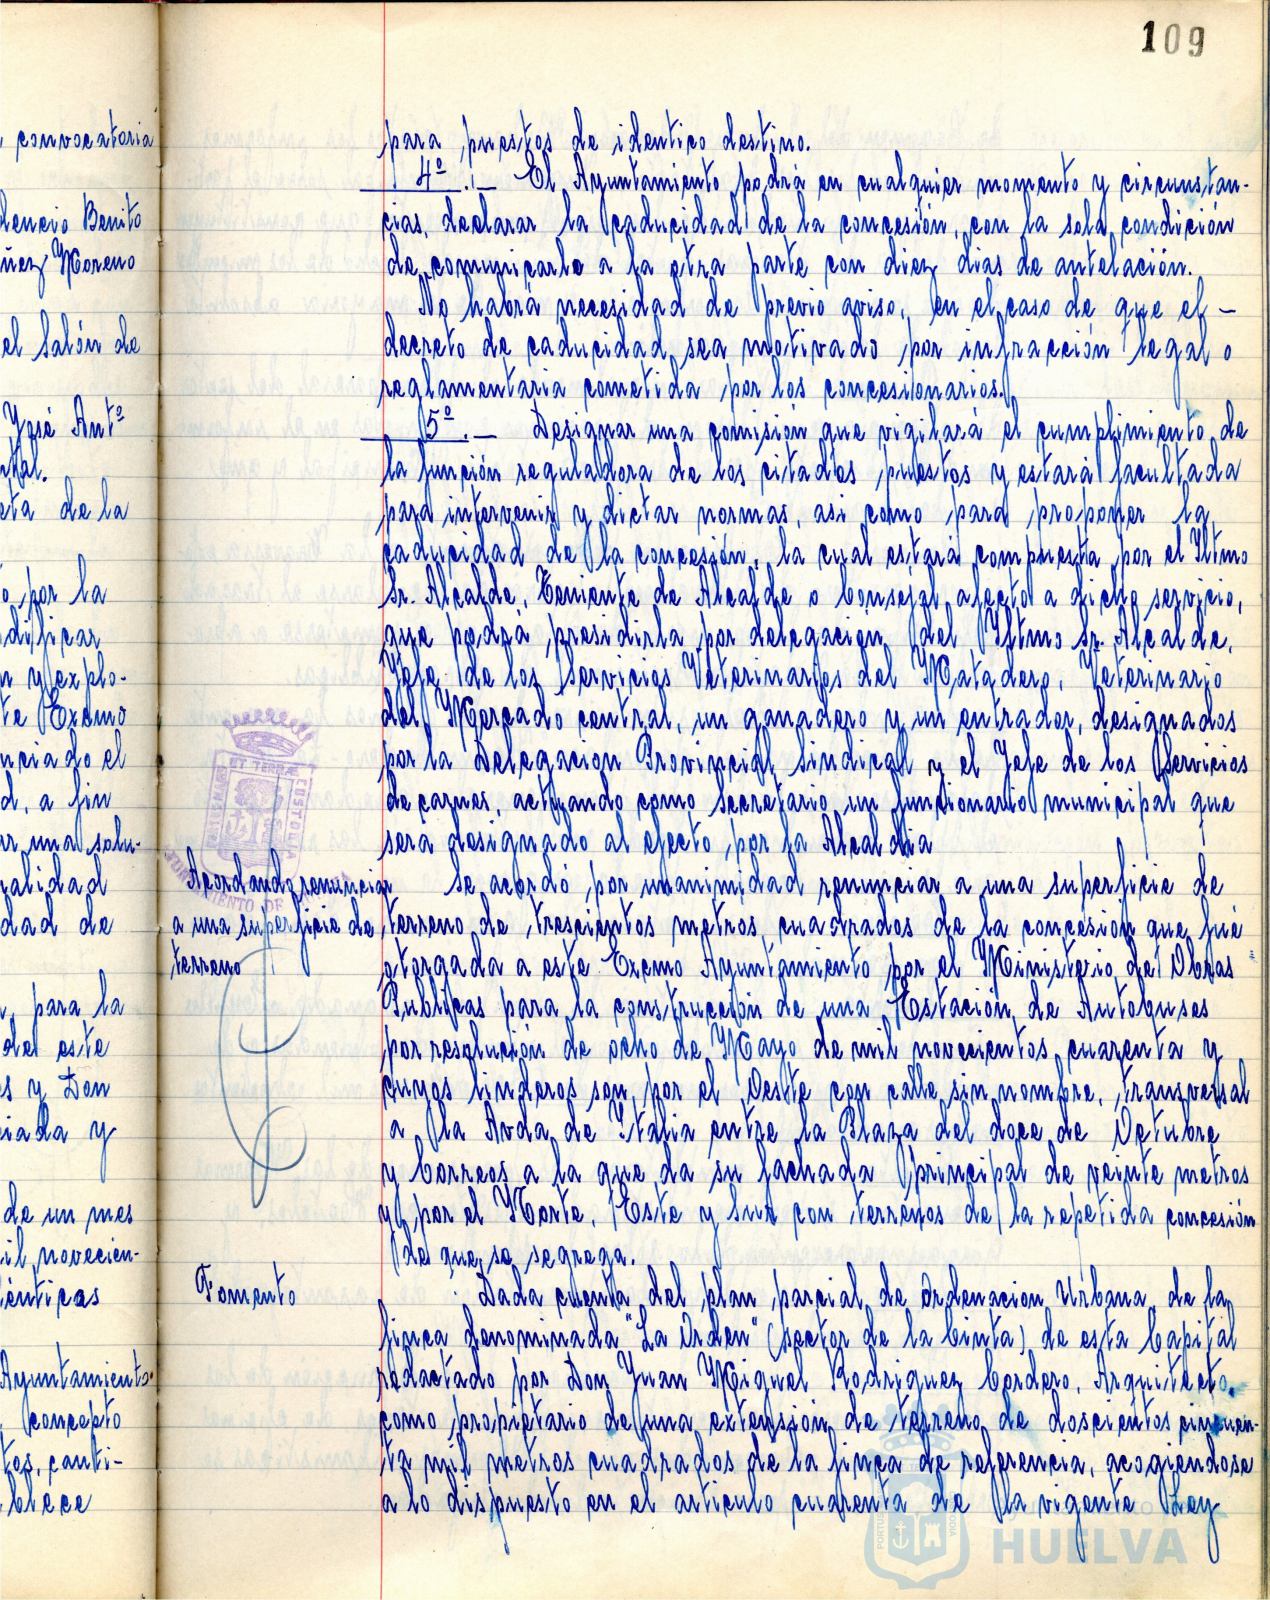 109
convocatoria
dencio Benito
ñez Moreno
el Salón de
José Antº
eta de la
o por la
dificar
n y explo-
te Excmo
nciado el
d, a fin
ar una solu-
alidad
dad de
, para la
del este
s y Don
ciada y
de un mes
il novecien-
énticas
Ayuntamiento
concepto
tos, canti-
blece
para puestos de identico destino.
4º .- El Ayuntamiento podrá en cualquier momento y circunstan-
cias, declarar la caducidad de la concesión, con la sola condición
de comunicarlo a la otra parte con diez dias de antelación.
No habrá necesidad de previo aviso, en el caso de que el -
decreto de caducidad sea motivado por infracción legal o
reglamentaria cometida por los concesionarios.
5º .- Designar una comisión que vigilará el cumplimiento de
la función reguladora de los citados puestos y estará facultada
para intervenir y dictar normas, asi como para proponer la
caducidad de la concesión, la cual estará compuesta por el Iltmo
Sr. Alcalde, Teniente de Alcalde o Consejal afecto a dicho servicio,
que podra presidirla por delegación del Iltmo Sr. Alcalde,
Jefe de los Servicios Veterinarios del Matadero, Veterinario
del Mercado central, un ganadero y un entrador, designados
por la Delegacion Provincial sindical y el Jefe de los Servicios
de carnes, actuando como Secretario un funcionario municipal que
sera designado al efecto por la Alcaldia
Acordando renunciar
a una superficie de
terreno
Se acordó por unanimidad renunciar a una superficie de
terreno de trescientos metros cuadrados de la concesión que fué
otorgada a este Excmo Ayuntamiento por el Ministerio de Obras
Publicas para la construcción de una Estación de Autobuses
por resolución de ocho de Mayo de mil novecientos cuarenta y
cuyos linderos son, por el Oeste con calle sin nombre, transversal
a la Avda de Italia entre la Plaza del doce de Octubre
y Correos a la que da su fachada principal de veinte metros
y por el Norte, Este y Sur con terrenos de la repetida concesión
de que se segrega.
Fomento
Dada cuenta del plan parcial de Ordenacion Urbana de la
finca denominada "La Orden" (sector de la Cinta) de esta Capital
redactado por Don Juan Miguel Rodriguez Cordero, Arquitecto,
como propietario de una extensión de terreno de doscientos cincuen-
ta mil metros cuadrados de la finca de referencia, acogiendose
a lo dispuesto en el articulo cuarenta de la vigente Ley
HUELVA